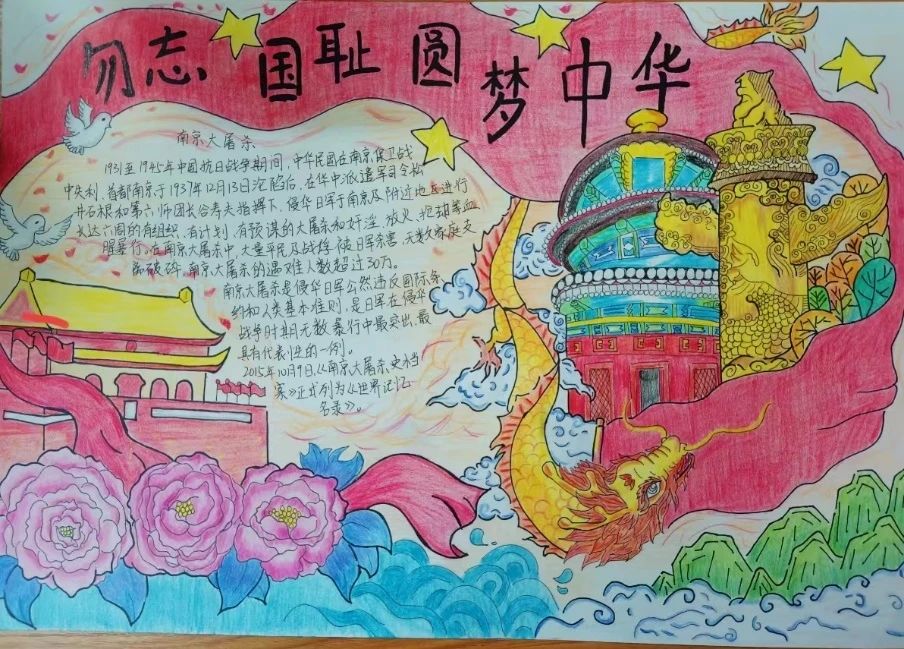 勿志 国耻 圆梦中华
南京大屠杀
1931至1945年中国抗日战争期间,中华民国在南京保卫战
中失利、首都南京于1937年12月13日沦陷后,在华中派遣军司令松
井石根和第六师团长谷寿夫指挥下,侵华日军于南京及附近地区进行
长达六周的有组织、有计划、有预谋的大屠杀和奸淫、放火、抢劫等血
腥暴行。在南京大屠杀中,大量平民及战俘被日军杀害,无数家庭支
离破碎,南京大屠杀的遇难人数超过30万。
南京大屠杀是侵华日军公然违反国际条
约和人类基本准则,是日军在侵华
战争时期无数暴行中最突出、最
具有代表性的一例。
2015年10月9日,《南京大屠杀史档
案》正式列为《世界记忆
名录》。